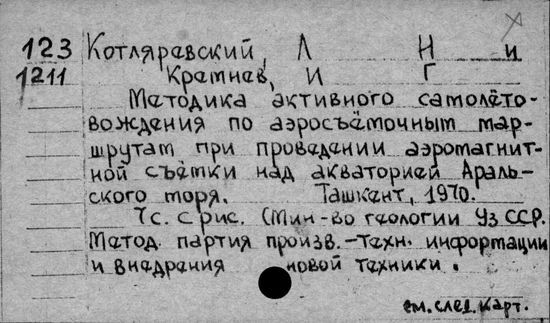 123 Котляревский, Л Н и
1211 Кратнев, И Г
Методика активного самолёто-
вождения по аэросъёмочным мар-
шрутам при проведении аэромагнит-
ной съёмки над акваторией Араль-
ского моря. Ташкент, 1970.
7с. с рис. (Мин-во геологии Уз ССР.
Метод. партия произв.-техн. информации
и внедрения новой техники.
см. след. карт.